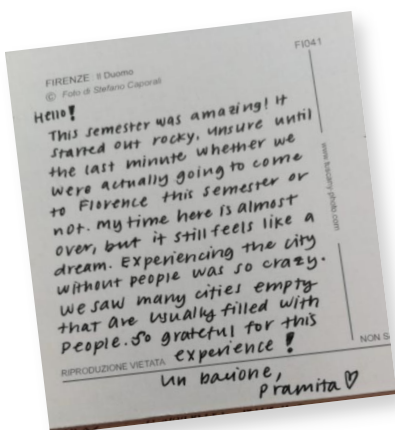 FI041
FIRENZE : Il Duomo
© Foto di Stefano Caporali
HELLO!
This semester was amazing! It
started out rocky, unsure until
the last minute whether we
were actually going to come
to Florence this semester or
not. My time here is almost
over, but it still feels like a
dream. Experiencing the city
without people was so crazy.
We saw many cities empty
that are usually filled with
people. So grateful for this
experience!
un bacione,
Pramita♡
RIPRODUZIONE VIETATA
NON S
www.tuscany-photo.com